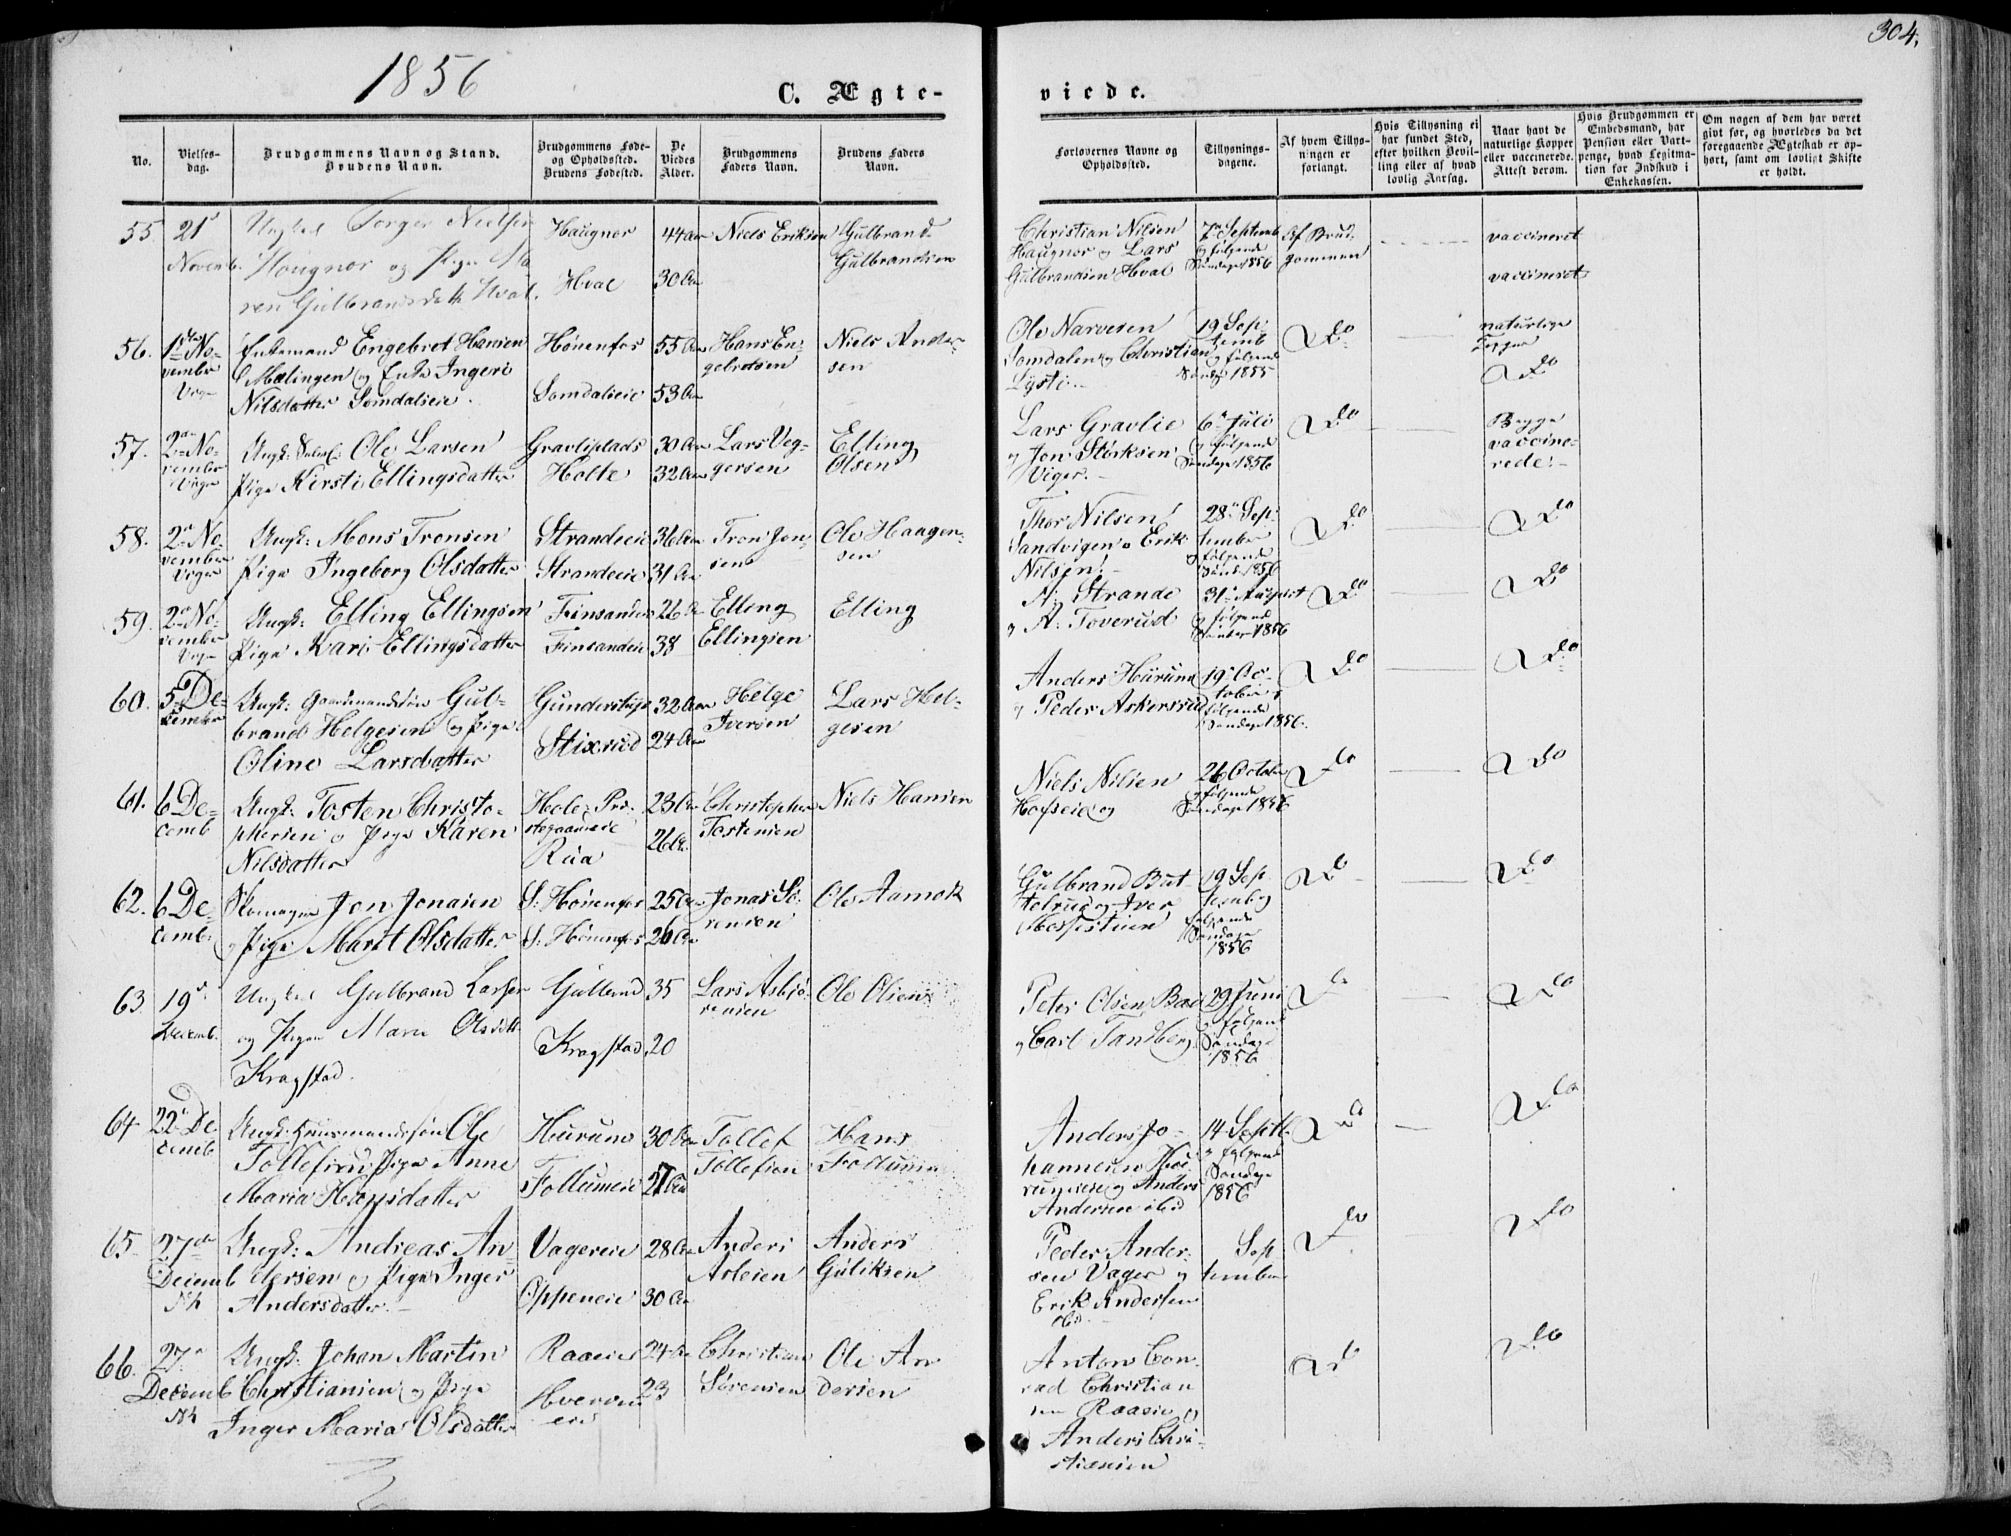 304.
1856
C. Ægte-
viede.
No.
Vielses-
dag.
Brudgommens Navn og Stand.
Brudens Navn.
Brudgommens Føde-
og Opholdssted.
Brudens Fødested.
De
Viedes
Alder.
Brudgommens
Faders Navn.
Brudens Faders
Navn.
Forlovernes Navne og
Opholdssted.
Tillysnings-
dagene.
Af hvem Tillys-
ningen er
forlangt.
Hvis Tillysning ei
har fundet Sted,
efter hvilken Bevil-
ling eller af hvad
lovlig Aarsag.
Naar havt de
naturlige Kopper
eller vaccinerede.
Attest derom.
Hvis Brudgommen er
Embedsmand, har
Pension eller Vart-
penge, hvad Legitima-
tion for Indskud i
Enkekassen.
Om nogen af dem har været
givt før, og hvorledes da det
foregaaende Ægteskab er op-
hørt, samt om lovligt Skifte
er holdt.
55 21
Novemb.
Ungkel Torger Nielsen
Hougnor og Pige Ma
ren Gulbrandsdatt. Hval.
Haugnor
Hval
44 Aar
30 Aar
Niels Eriksen
Gulbrand
Gulbrandsen
Christian Nilsen
Haugnor og Lars
Gulbrandsen Hval
7 Septemb
og følgende
Søndage 1856
Af Brud
gommen
vaccineret
vaccineret
56. 1ste No-
vember
Enkemand Engebret Hansen
Mælingen og Enke Ingeri
Nilsdatter Somdaleie.
Hønenfos
Somdaleie
55 Aar
53 Aar
Hans En-
gebretsen
Niels Ander-
sen
Ole Narvesen
Somdalen og Christian
19 Sep-
temb
og følgende
Søndge 1855
Do
naturlige
Do
57. 2den No-
vember
Ungk: Ole Larsen
Pige Kirsti Ellingsdatter
Gravliplads
Holte
30 Aar
32 Aar
Lars Veg-
gersen
Elling
Olsen
Lars Gravlie
og Jon Størksen
Viger.
6 Juli
og følgende
Søndage 1856
Do
Begge
vaccine-
rede.
58. 2den No-
vember
Ungk: Mons Tronsen
Pige Ingeborg Olsdatter
Strandeeie
Strandeeie
36 Aar
31 Aar
Tron Jon-
sen
Ole Haagen-
sen
Thor Nilsen
Sandvigen og Erik
Nilsen
28 Sep-
tember
og følgende
Sønd. 1856
Do
Do
59. 2den No-
vember
Ungk: Elling Ellingsen
Pige Kari Ellingsdatter
Finsandeie
Finsandeie
26 Aar
38
Elling
Ellingsen
Elling
N: Strande
og A: Toverud
31 August
og følgend
Søndage 1856
Do
Do
60. 5 De-
cember
Ungk: Gaardmandssøn Gul-
brand Helgesen og Pige
Oline Larsdatter
Stixrud
32 Aar
24 Aar
Helge
Iversen
Lars Hel-
gesen
Anders Hurum
og Peder Askersrud
19 Oc-
tober
følgende
Søndage 1856.
Do
Do
61. 6 De-
cemb
Ungk: Tosten Christo-
phersen og Pige Karen
Nilsdatter
Hole Præ-
stegaardeie
Rua
23 Aar
26 Aar
Christopher
Tostensen
Niels Hansen
Niels Nilsen
Hofseie og
26 October
og følgende
Søndage 1856
Do
Do
62. 6 De-
cemb.
Skomager Jon Jonasen
og Pige Marit Olsdatter
S: Hønenfos
S: Hønenfos
25 Aar
26 Aar
Jonas Sø-
rensen
Ole Aamok
Gulbrand But-
telrud og Iver
19 Sep
temb og
følgende
Søndage
1856
Do
Do
63. 19
Decemb.
Ungkel Gulbrand Larsen
og Pigen Maren Olsdatt.
Kragstad.
Kragstad
35
20
Lars Asbjø-
rensen
Ole Olsen
Peter Olsen
og Carl Tandberg
29 Juni
og følgend
Søndage
1856
Do
Do
64 22 De
cemb
Ungk. Huusmandssøn Ole
Tollefsen Pige Anne
Maria Hansdatter
Hurum
Follumeie
30 Aar
27 Aar
Tollef
Tollefsen
Hans
Anders Jo-
hannesen Hu-
rumeie og Anders
Andersen ibid
14 Septb.
og følgende
Søndage
1856
Do
Do
65 27de
Decemb
Ungk: Andreas An-
dersen og Pige Inger
Andersdatter.
Vagereie
Oppeneie
28 Aar
30 Aar
Anders
Aslesen
Anders
Guliksen
Peder Ander-
sen Vager og
Erik Andersen
Sep
tember
Do
Do
66. 27
Decemb
Ungk: Johan Martin
Christiansen og Pige
Inger Maria Olsdatter
Raaeie
24 Aar
23
Christian
Sørensen
Ole An
dersen
Anton Con-
rad Christian
sen Raaeie og
Anders Chri-
stiansen
Do
Do